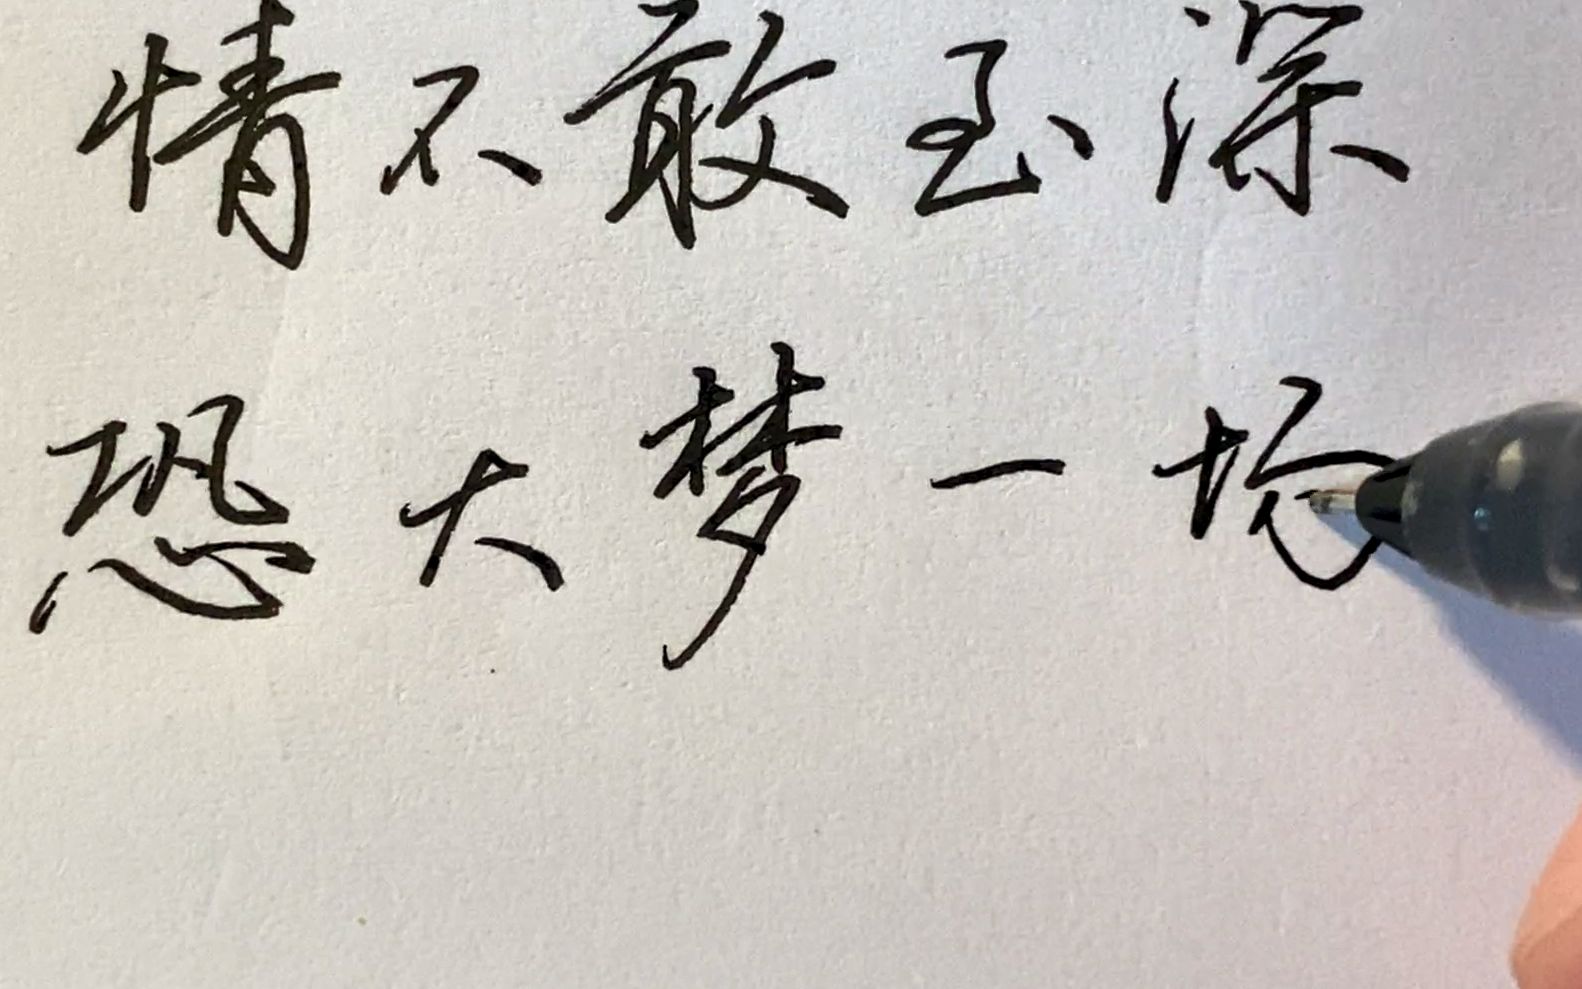 情不敢至深
恐大梦一场